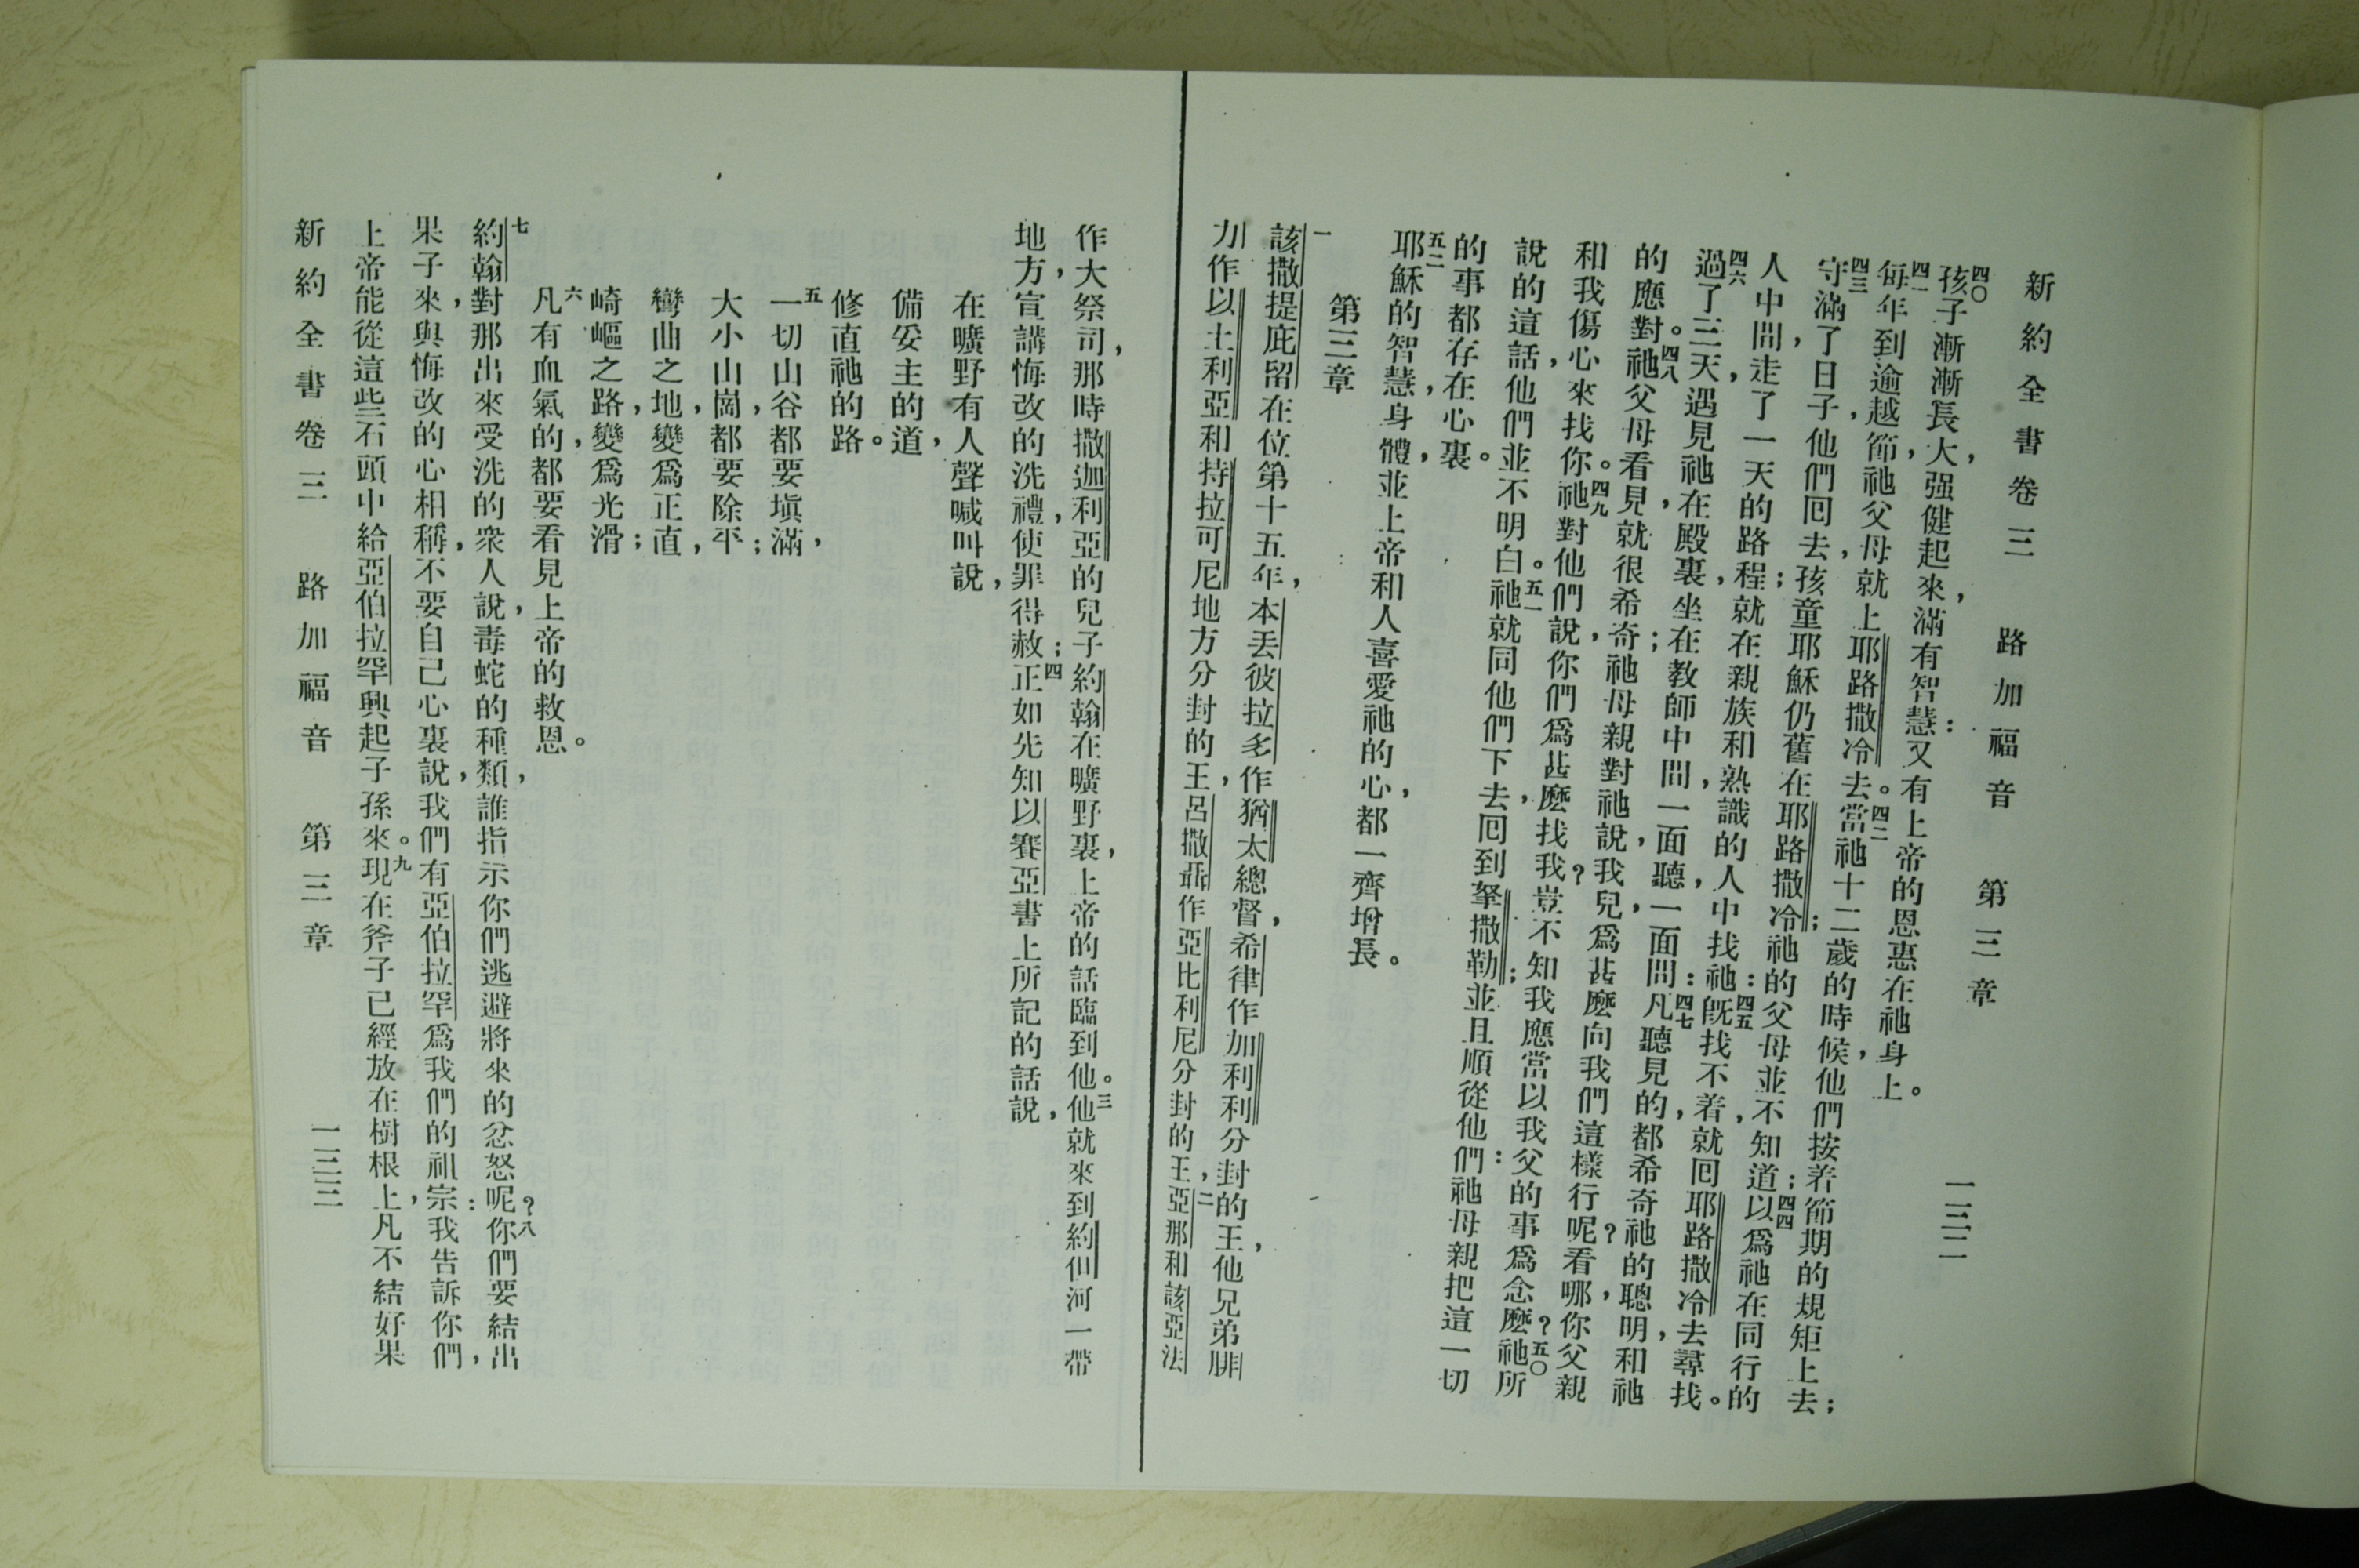 新約全書卷三　路加福音　第三章　一三二
四〇孩子漸漸長大，强健起來，滿有智慧：又有上帝的恩惠在祂身上。
四一每年到逾越節，祂父母就上耶路撒冷去。四二當祂十二歲的時候，他們按着節期的規矩上去；
四三守滿了日子，他們囘去，孩童耶穌仍舊在耶路撒冷；祂的父母並不知道；四四以爲祂在同行的
人中間，走了一天的路程；就在親族和熟識的人中找祂：四五旣找不着，就囘耶路撒冷去尋找。
四六過了三天，遇見祂在殿裏，坐在教師中間，一面聽，一面問：四七凡聽見的，都希奇祂的聰明，和祂
的應對。四八祂父母看見，就很希奇；祂母親對祂說，我兒，爲甚麼向我們這樣行呢？看哪，你父親
和我傷心來找你。四九祂對他們說，你們爲甚麼找我？豈不知我應當以我父的事爲念麼？五〇祂所
說的這話，他們並不明白。五一祂就同他們下去，囘到拏撒勒；並且順從他們：祂母親把這一切
的事都存在心裏。
五二耶穌的智慧，身體，並上帝和人喜愛祂的心，都一齊增長。
第三章
一該撒提庇留在位第十五年，本丟彼拉多作猶太總督，希律作加利利分封的王，他兄弟腓
力作以土利亞和持拉可尼地方分封的王，呂撒聶作亞比利尼分封的王，二亞那和該亞法
作大祭司，那時撒迦利亞的兒子約翰在曠野裏，上帝的話臨到他。三他就來到約但河一帶
地方，宣講悔改的洗禮，使罪得赦；四正如先知以賽亞書上所記的話說，
在曠野有人聲喊叫說，
備妥主的道，
修直祂的路。
五一切山谷都要塡滿，
大小山崗，都要除平；
彎曲之地，變爲正直，
崎嶇之路，變爲光滑；
六凡有血氣的，都要看見上帝的救恩。
七約翰對那出來受洗的衆人說，毒蛇的種類，誰指示你們逃避將來的忿怒呢？八你們要結出
果子來，與悔改的心相稱，不要自己心裏說，我們有亞伯拉罕爲我們的祖宗：我告訴你們，
上帝能從這些石頭中給亞伯拉罕興起子孫來。九現在斧子已經放在樹根上，凡不結好果
新約全書卷三　路加福音　第三章　一三三